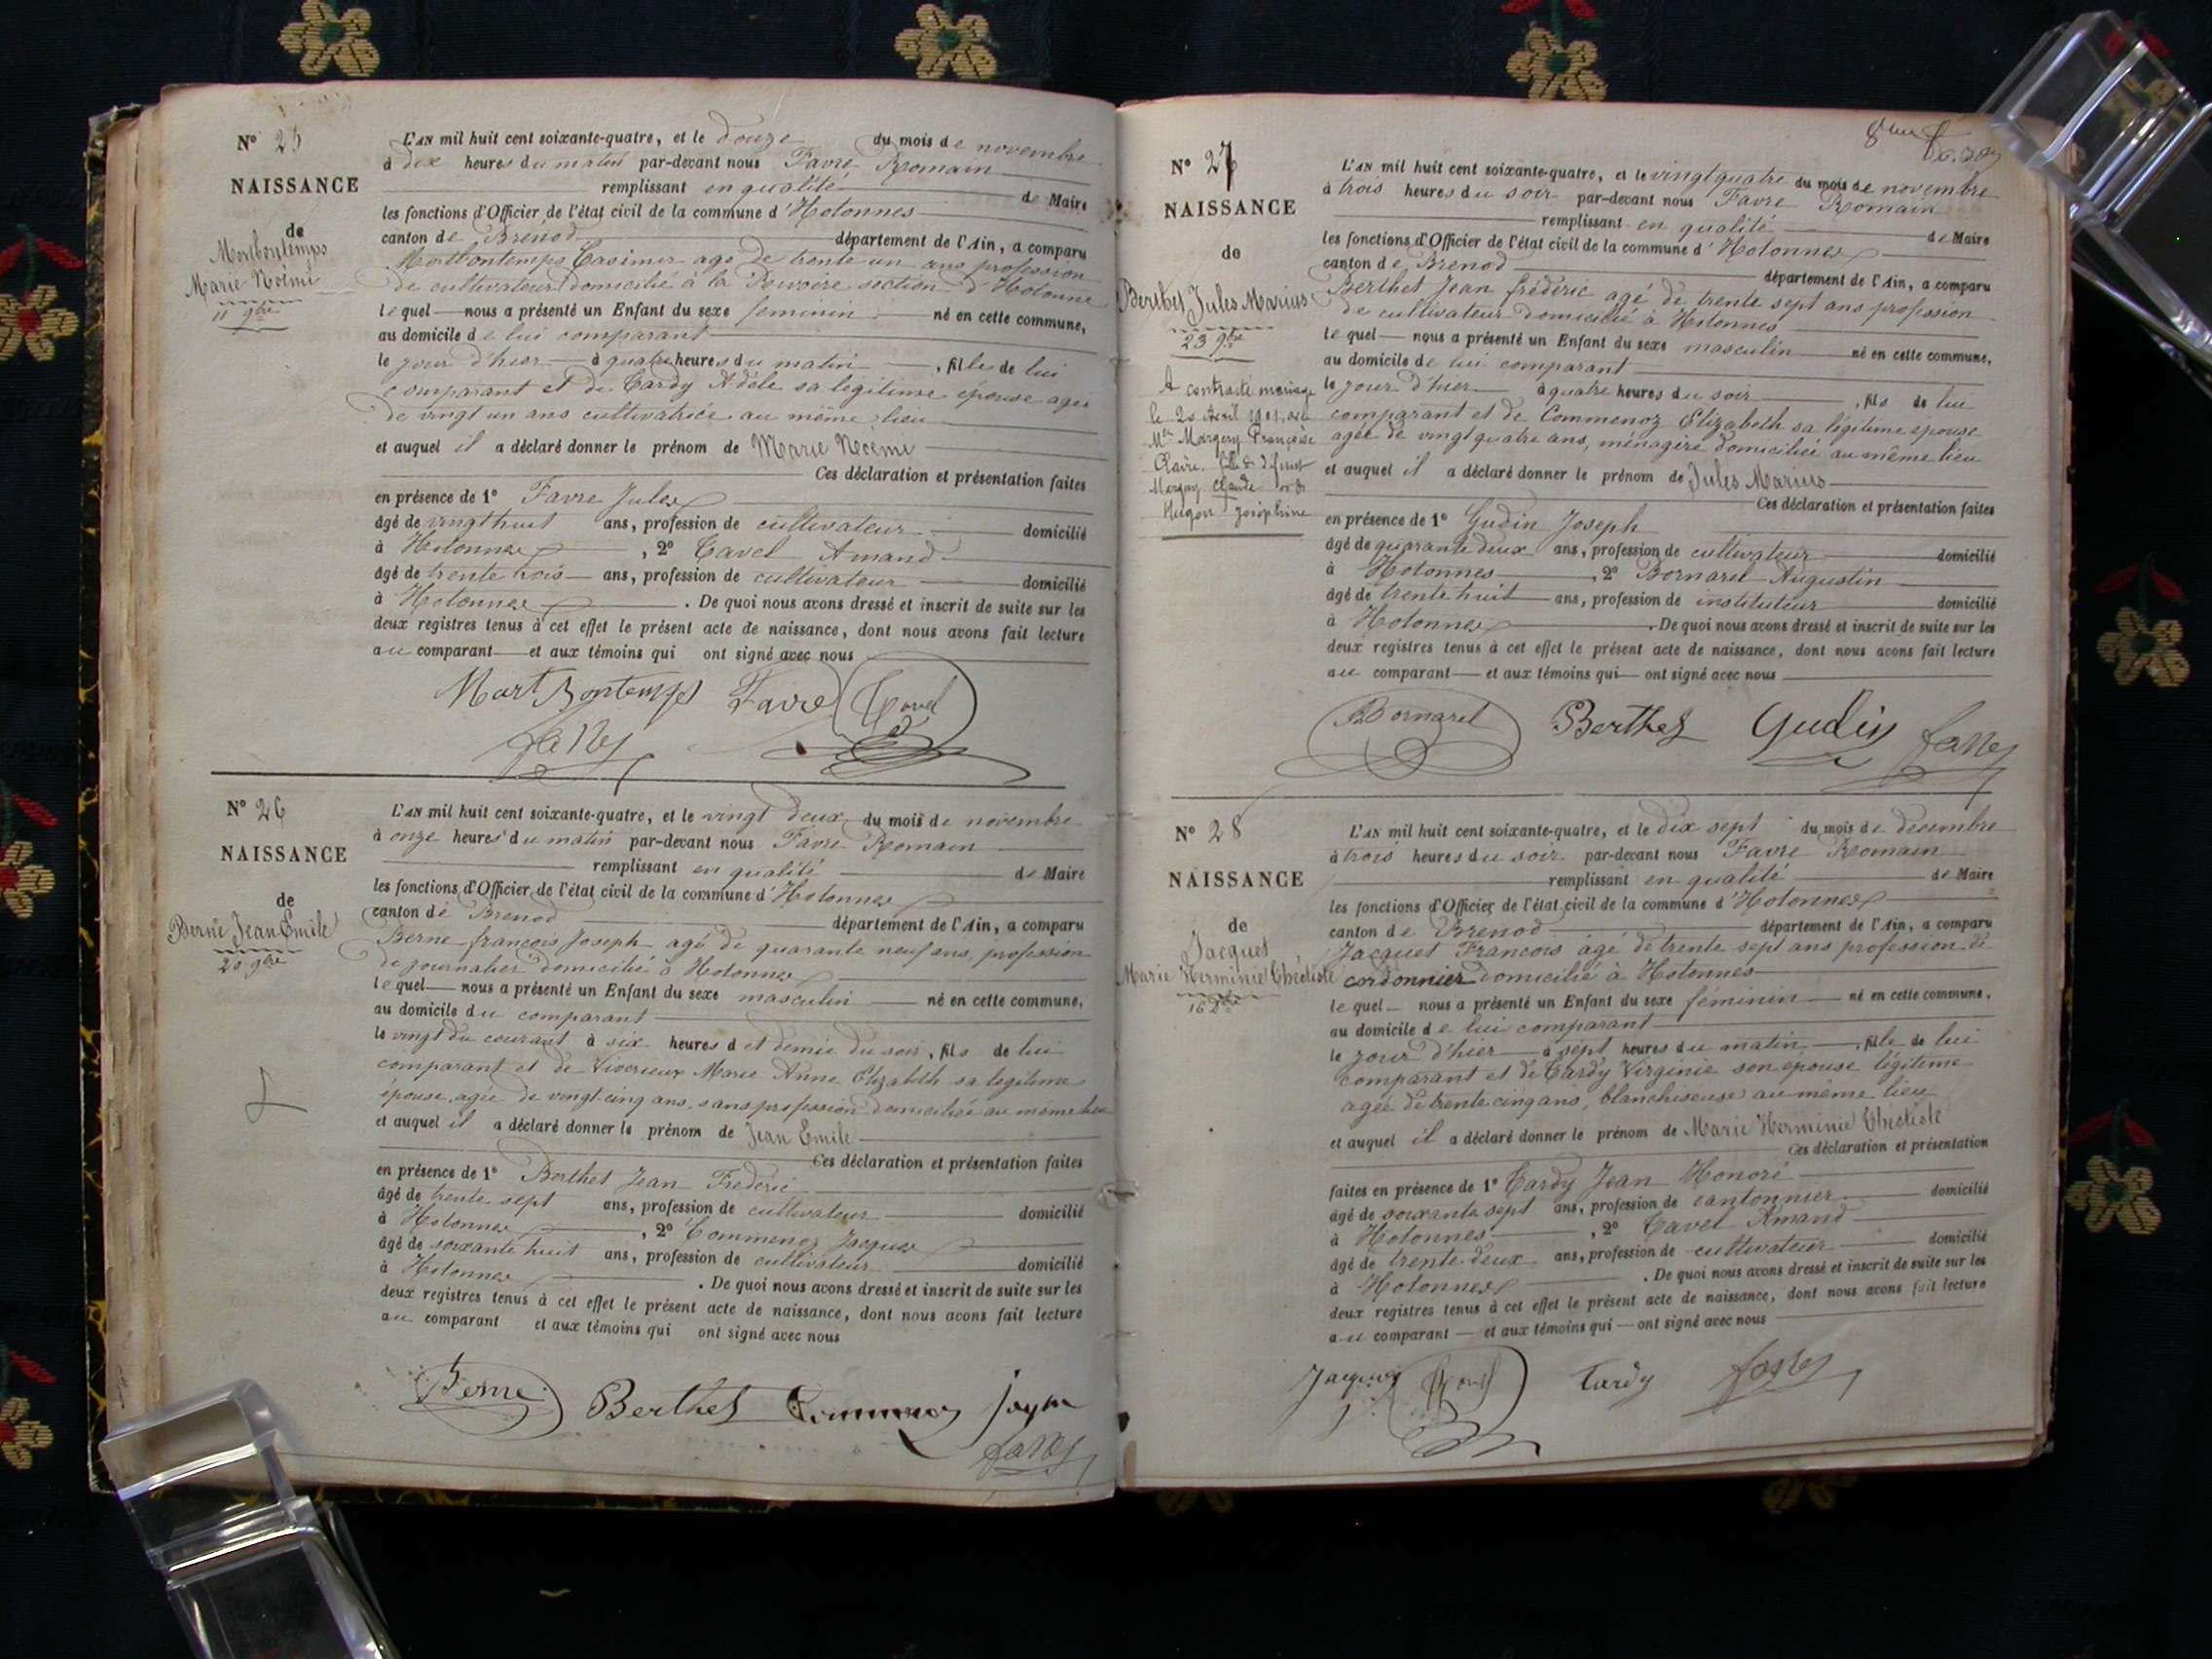 N° 25
NAISSANCE
de
Marie Noémi
11 9bre
L'AN mil huit cent soixante-quatre, et le douze du mois de novembre
à dix heures du matin par-devant nous Favre Romain
remplissant en qualité de Maire
les fonctions d'Officier de l'état civil de la commune d'Hotonnes
canton de Brénod département de l'Ain, a comparu
Casimir agé de trente un ans profession
de cultivateur domicilié à la section d'Hotonne
le quel nous a présenté un Enfant du sexe feminin né en cette commune,
au domicile de lui comparant
le jour d'hier à quatre heures du matin, fille de lui
comparant et de Tardy Adèle sa legitime épouse agée
de vingt un ans cultivatrice au même lieu
et auquel il a déclaré donner le prénom de Marie Noémi
Ces déclaration et présentation faites
en présence de 1° Favre Jules
âgé de vingt huit ans, profession de cultivateur domicilié
à Hotonnes, 2° Tavel Amand
âgé de trente trois ans, profession de cultivateur domicilié
à Hotonnes. De quoi nous avons dressé et inscrit de suite sur les
deux registres tenus à cet effet le présent acte de naissance, dont nous avons fait lecture
au comparant et aux témoins qui ont signé avec nous
Mart Bontemps Favre Tavel
N° 26
NAISSANCE
de
Berne Jean Emile
20 9bre
L'AN mil huit cent soixante-quatre, et le vingt deux du mois de novembre
à onze heures du matin par-devant nous Favre Romain
remplissant en qualité de Maire
les fonctions d'Officier de l'état civil de la commune d'Hotonnes
canton de Brenod département de l'Ain, a comparu
Berne françois Joseph agé de quarante neuf ans, profession
de journalier domicilié à Hotonnes
le quel nous a présenté un Enfant du sexe masculin né en cette commune,
au domicile du comparant
le vingt du courant à six heures d et demie du soir, fils de lui
comparant et de Marie Anne Elizabeth sa legitime
épouse, agée de vingt-cinq ans, sans profession domiciliée au même lieu
et auquel il a déclaré donner le prénom de Jean Emile
Ces déclaration et présentation faites
en présence de 1° Berthet Jean Frederic
âgé de trente sept ans, profession de cultivateur domicilié
à Hotonnes, 2° Commenoz Jacques
âgé de soixante huit ans, profession de cultivateur domicilié
à Hotonnes. De quoi nous avons dressé et inscrit de suite sur les
deux registres tenus à cet effet le présent acte de naissance, dont nous avons fait lecture
au comparant et aux témoins qui ont signé avec nous
Berne Berthet
N° 27
NAISSANCE
de
Berthet Jules Marius
23 9bre
A contracté mariage
le 20 Avril
Margery Françoise
Claire, fille de défunt
Claude
Hugon Joséphine
L'AN mil huit cent soixante-quatre, et le vingt quatre du mois de novembre
à trois heures du soir par-devant nous Favre Romain
remplissant en qualité de Maire
les fonctions d'Officier de l'état civil de la commune d'Hotonnes
canton de Brenod département de l'Ain, a comparu
Berthet Jean frédéric agé de trente sept ans profession
de cultivateur domicilié à Hotonnes
le quel nous a présenté un Enfant du sexe masculin né en cette commune,
au domicile de lui comparant
le jour d'hier à quatre heures du soir, fils de lui
comparant et de Commenoz Elizabeth sa légitime épouse
agée de vingt quatre ans, ménagère domiciliée au même lieu
et auquel il a déclaré donner le prénom de Jules Marius
Ces déclaration et présentation faites
en présence de 1° Gudin Joseph
âgé de quarante deux ans, profession de cultivateur domicilié
à Hotonnes, 2° Bornarel Augustin
âgé de trente huit ans, profession de instituteur domicilié
à Hotonnes. De quoi nous avons dressé et inscrit de suite sur les
deux registres tenus à cet effet le présent acte de naissance, dont nous avons fait lecture
au comparant et aux témoins qui ont signé avec nous
Bornarel Berthet Gudin
N° 28
NAISSANCE
de
Jacquet
Marie Herminie Théotiste
L'AN mil huit cent soixante-quatre, et le dix sept du mois de decembre
à trois heures du soir par-devant nous Favre Romain
remplissant en qualité de Maire
les fonctions d'Officier de l'état civil de la commune d'Hotonnes
canton de Brenod département de l'Ain, a comparu
Jacquet Francois âgé de trente sept ans profession de
cordonnier domicilié à Hotonnes
le quel nous a présenté un Enfant du sexe féminin né en cette commune,
au domicile de lui comparant
le jour d'hier à sept heures du matin, fille de lui
comparant et de Tardy Virginie son épouse légitime
agée de trente cinq ans, blanchiseuse au même lieu
et auquel il a déclaré donner le prénom de Marie Herminie Théotiste
Ces déclaration et présentation
faites en présence de 1° Tardy Jean Honoré
âgé de soixante sept ans, profession de cantonnier domicilié
à Hotonnes, 2° Tavel Amand
âgé de trente deux ans, profession de cultivateur domicilié
à Hotonnes. De quoi nous avons dressé et inscrit de suite sur les
deux registres tenus à cet effet le présent acte de naissance, dont nous avons fait lecture
au comparant et aux témoins qui ont signé avec nous
Tardy